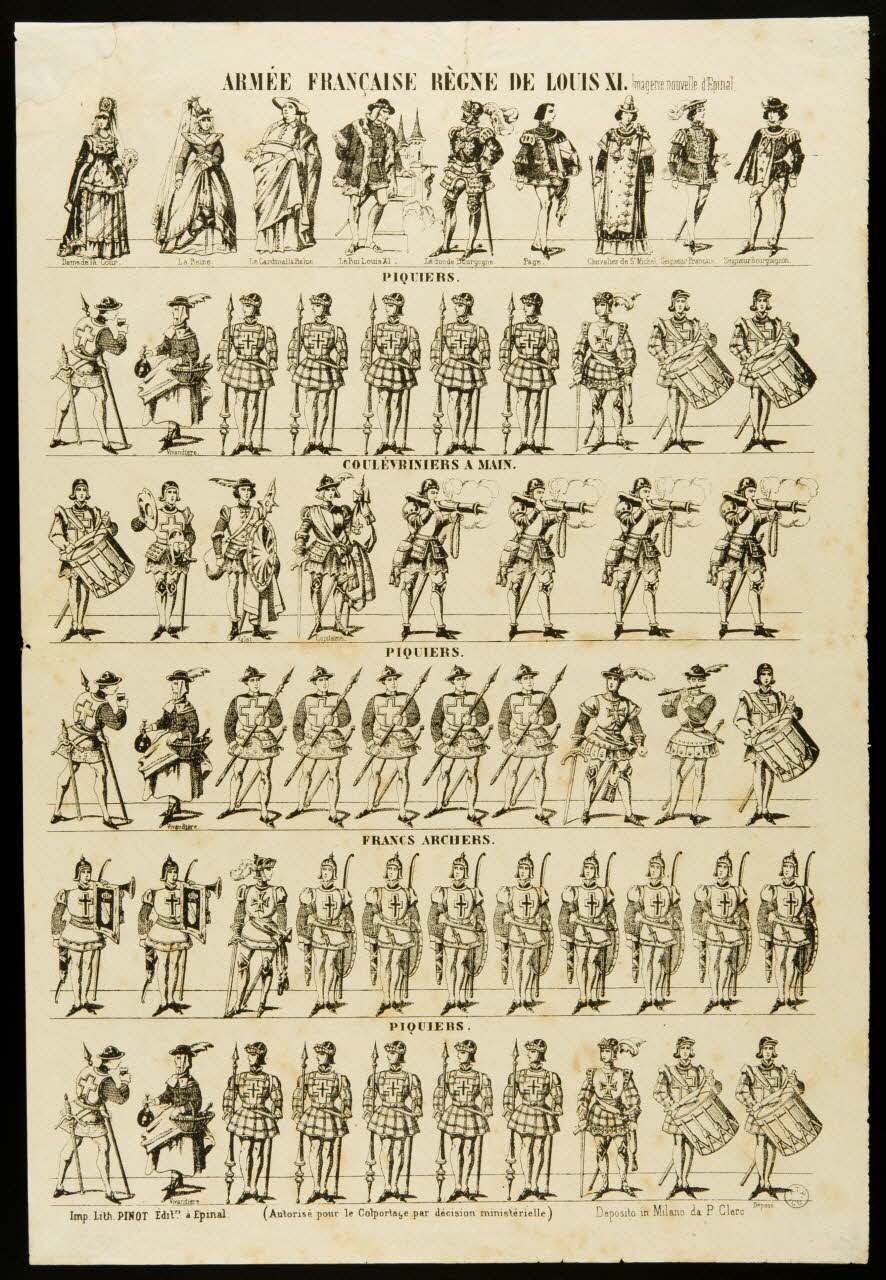 ARMÉE FRANÇAISE RÈGNE DE LOUIS XI. Imagerie nouvelle d'Epinal
Dame de la Cour. La Reine. Le Cardinal la Balue Le Roi Louis XI. Le duc de Bourgogne Page. Chevalier de St Michel. Seigneur Français. Seigneur Bourguignon.
PIQUIERS.
Vivandière
COULÉVRINIERS A MAIN.
Capitaine
PIQUIERS.
Vivandière
FRANCS ARCHERS.
PIQUIERS.
Vivandière
Imp. Lith. PINOT Éditr. à Epinal. (Autorisé pour le Colportage par décision ministérielle) Deposito in Milano da P. Clerc Déposé